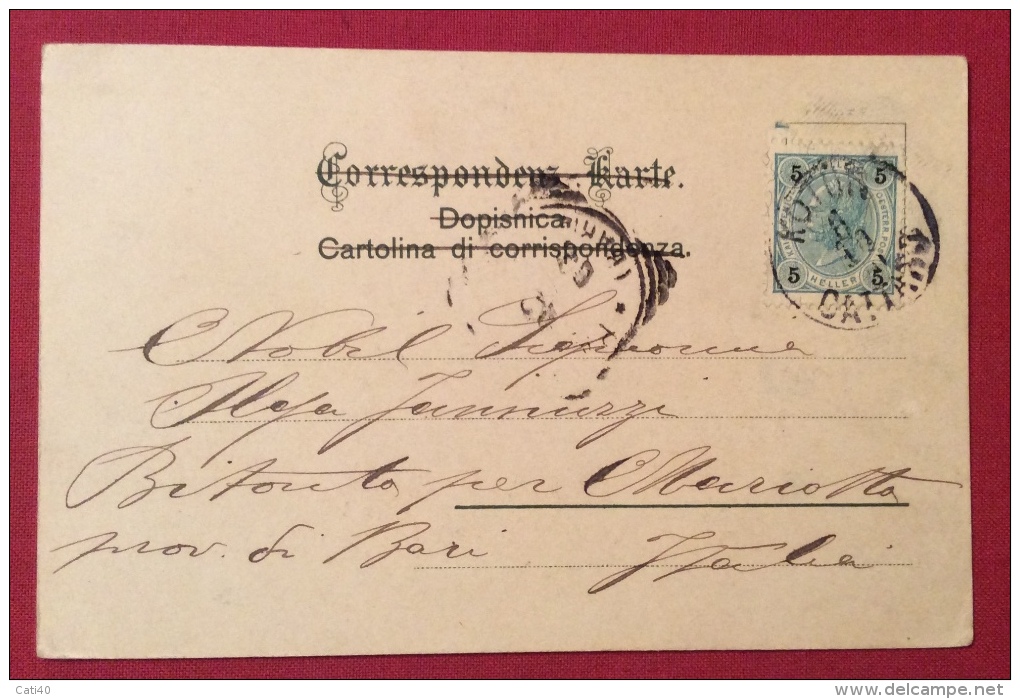 Correspondenz-Karte.
Dopisnica
Cartolina di corrispondenza.
5 5
5 HELLER 5
CATTARO
Nobil Signorina
Jannuzzi
Bitonto per Mariotto
prov. di Bari Italia
Cati40
delcampe.net